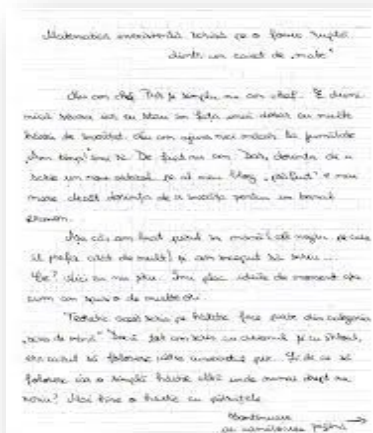 Matematica inexistentă scrisă pe o foaie ruptă
dintr-un caiet de „mate"
Nu am chef. Pur și simplu nu am chef. E duminică
seara iar eu stau în fața unui dosar cu multe
de învățat. Nu am ajuns nici măcar la jumătate
„Am timp!" îmi zic. De fapt nu am. Dar, dorința de a
scrie un nou articol pe al meu blog „părfuit" e mai
mare decât dorința de a învăța pentru un banal
examen.
Așa că am luat pixul în mână (de negru pe care
îl prefer atât de mult) și am început să scriu...
Ce? Nici eu nu știu. Îmi plac ideile de moment așa
cum am spus-o de multe ori.
Tot scris pe hârtie face parte din categoria
„scris de mână" Dacă tot am scris cu creionul și cu stiloul,
era cazul să folosesc și pix. Și de ce să
folosesc o simplă hârtie albă unde numai drept nu
scriu? Mai bine o hârtie cu pătrățele
Continuare
pe următoarea pagină →